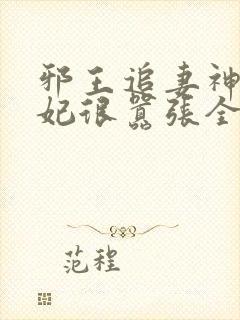 邪王追妻神
妃很嚣张全
范程